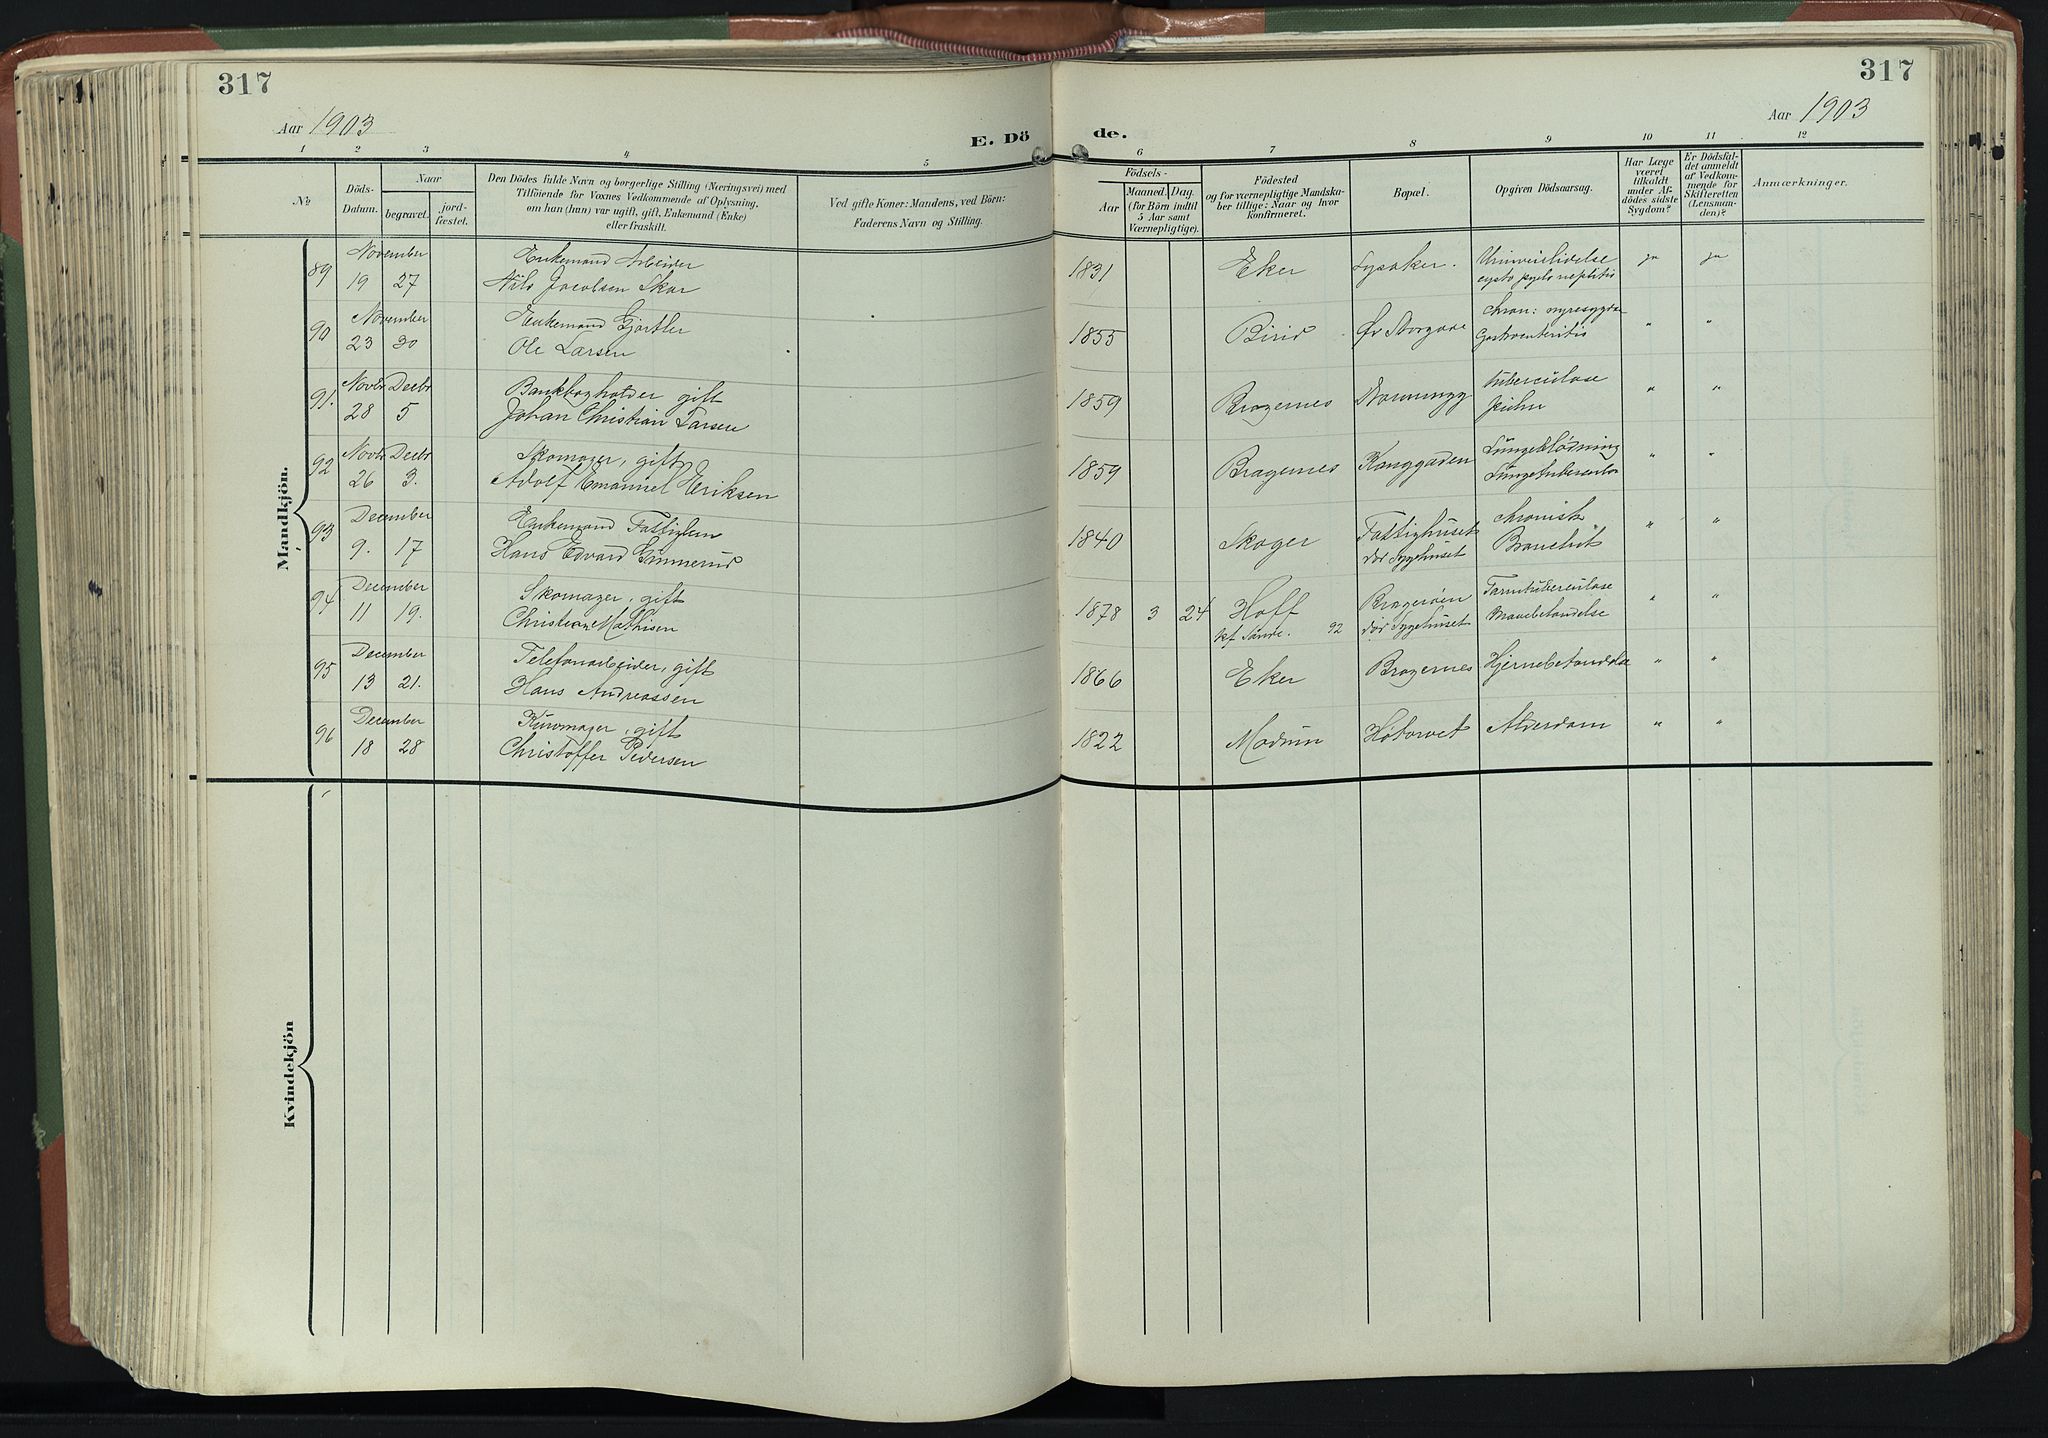 317
317
Aar 1903
E. Dö
de.
Aar 1903
1 2 3 4 5 6 7 8 9 10 11 12
№
Döds-
Datum.
Naar
begravet.
jord-
fæstet.
Den Dödes fulde Navn og borgerlige Stilling (Næringsvei) med
Tilföiende for Voxnes Vedkommende af Oplysning,
om han (hun) var ugift, gift, Enkemand (Enke)
eller fraskilt.
Ved gifte Koner: Mandens, ved Börn:
Faderens Navn og Stilling.
Födsels-
Aar
Maaned. Dag.
(for Börn indtil
5 Aar samt
Værnepligtige).
Födested
og for værnepligtige Mandska-
ber tillige: Naar og hvor
konfirmeret.
Bopæl.
Opgiven Dödsaarsag.
Har Læge
været
tilkaldt
under Af-
dödes sidste
Sygdom?
Er Dödsfal-
det anmeldt
af Vedkom-
mende for
Skifteretten
(Lensman-
den)?
Anmærkninger.
Mandkjön.
89 November Enkemand Arbeider
19 27 Nils Jacobsen Skar 1831 Eker Lysaker. ja ja
90 November Enkemand Gjørtler
23 30 Ole Larsen 1855 Birid Øv Storgade Chron: nyresygdom Gastroenteritis " "
91. Novbr Decbr Bankbogholder gift
28 5 Johan Christian Larsen 1859 Bragernes tuberculose " "
92 Novbr Decbr Skomager, gift
26 3. Adolf Emanuel Eriksen 1859 Bragernes Konggaden Lungeblødning " "
93 December Enkemand Fattiglem
9. 17 Hans Edvard Gunnerud 1840 Skoger Fattighuset Chronisk " "
dør Sygehuset Bronchit
94 December Skomager, gift
11 19. Christian Mathisen 1878 3 24 Hoff Bragerøen Tarmtuberculose " "
kf Sande. 92 dør Sygehuset Mavebetændelse
95 December Telefonarbeider, gift
13 21. Hans Andreassen 1866 Eker Bragernes Hjernebetændelse " "
96 December Kurvmager, gift
18 28 Christoffer Pedersen 1822 Modum Høtorvet Alderdom " "
Kvindekjön